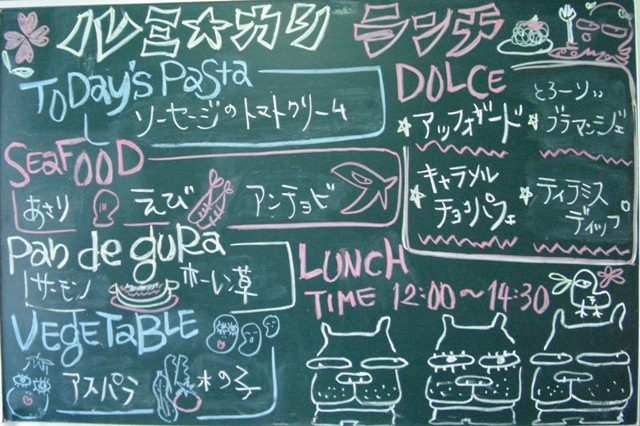 ルミ☆カリ ランチ
TODay's Pasta
ソーセージのトマトクリーム
SeaFOOD
あさり えび アンチョビ
Pan de gura
サーモン ホーレン草
VegeTaBLE
アスパラ 木の子
DOLCE
アッフォガード
とろーりい
ブラマンジェ
キャラメル
チョコパフェ
ティラミス
ディップ
LUNCH
TIME 12:00〜14:30